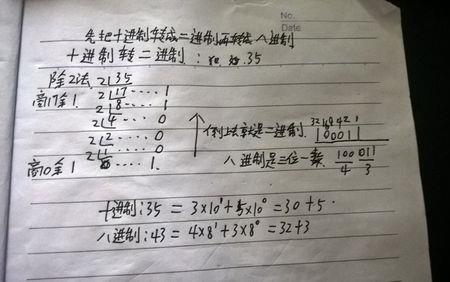 No.
Date
先把十进制转成二进制再转成八进制
十进制转二进制: 35
除2法. 2|35
商17余1. 2|17 ···· 1
2|8 ···· 1
2|4 ···· 0
2|2 ···· 0
2|1 ···· 0
商0余1 0 ···· 1.
32 16 8 4 2 1
倒上去就是二进制. 100011
八进制是三位一数. 100 011
4 3
十进制: 35 = 3×10¹+5×10⁰ = 30+5.
八进制: 43 = 4×8¹+3×8⁰ = 32+3